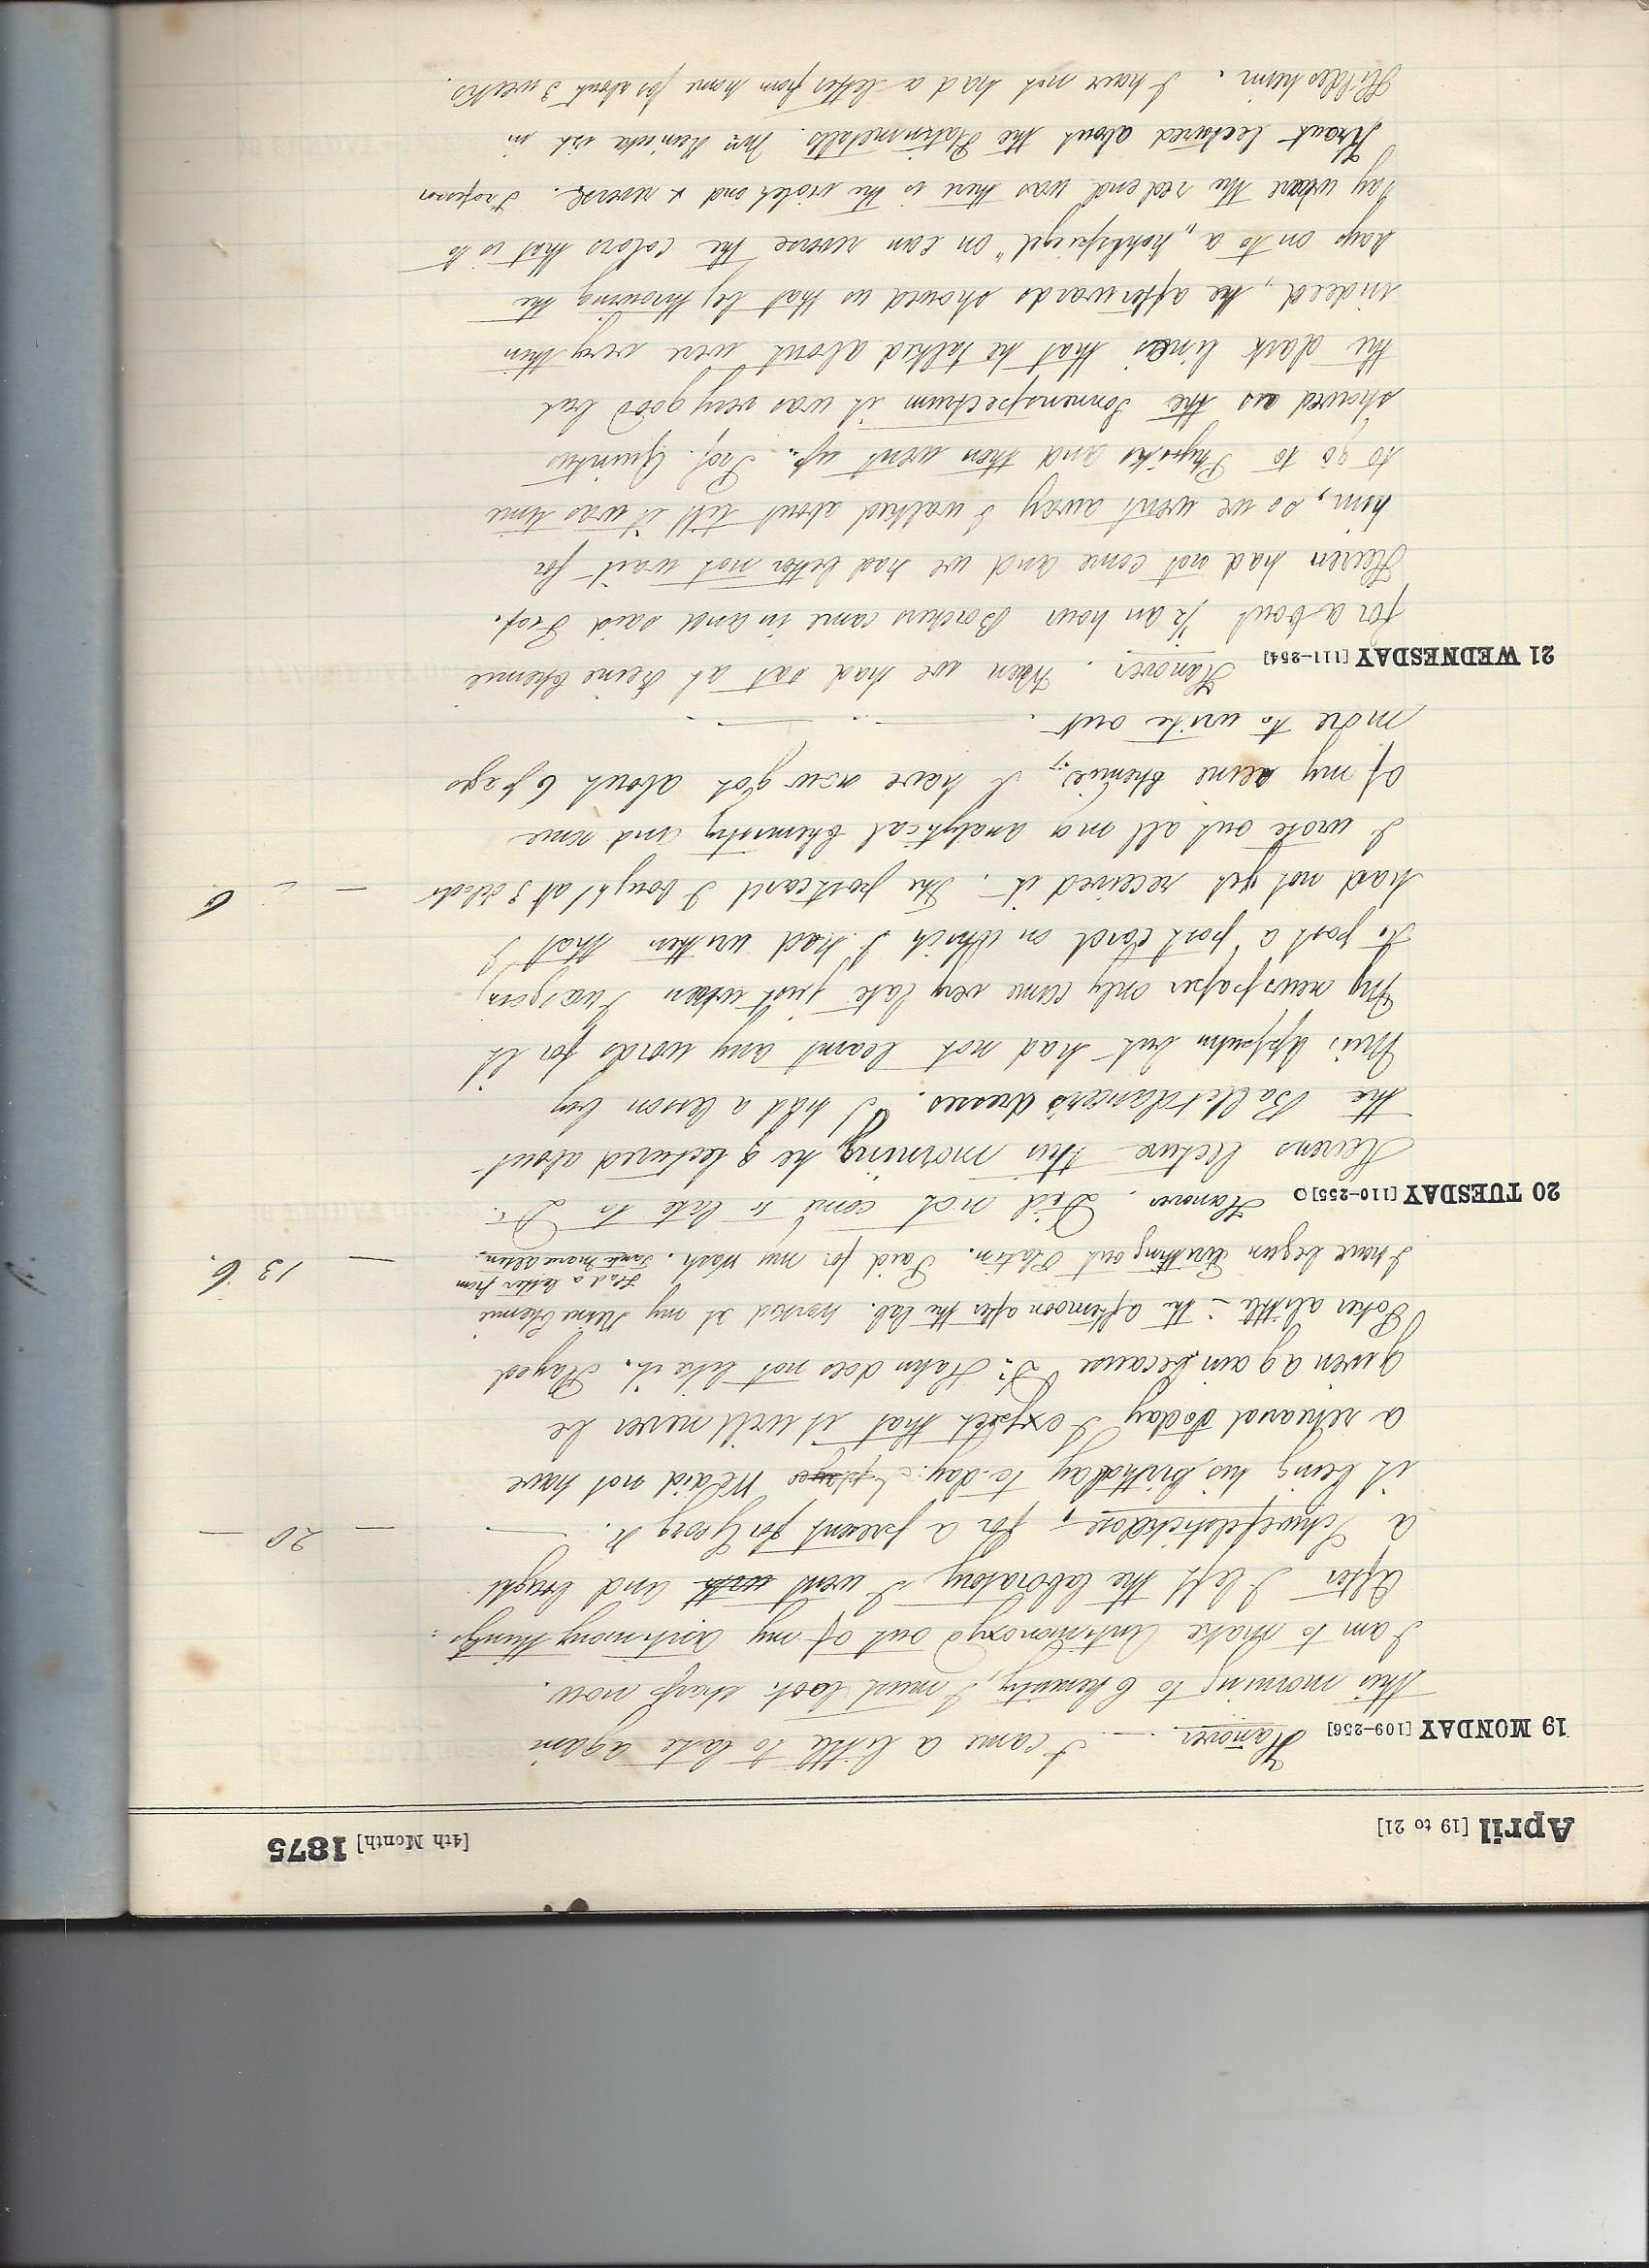 April [19 to 21] [4th Month] 1875
19 MONDAY [109-256] Hanover. — I came a little to late again
this morning to Chemistry, I must look sharp now.
I am to make Antimonoxyd out of my antimony things.
After I left the laboratory I went and bought
a Schwefelstickdose, for a present for Georg K. — — 20 —
it being his birthday to-day. We did not have
a rehearsal today I expect that it will never be
given again because Dr. Hahn does not like it. Played
Poker a little in the afternoon after the lab. worked at my Reine Chemie
I have begun writting out Platin. Paid for my wash. Had a letter from Tante Marie Alten. — 13 6.
20 TUESDAY [110-255] Hanover. Did not come to late to Dr.
Heerens lecture this morning, he lectured about
the Ballet dancers dresses. I had a lesson by
Miss but had not learnt any words for it
My newspaper only came very late just when I was going
to post a post card on which I had written that I
had not yet received it. The postcard I bought at 3 oclock — — 6.
I wrote out all my analytical Chemistry and some
of my reine Chemie, I have now got about 6 pages
more to write out.
21 WEDNESDAY [111-254] Hanover. When we had sat at Reine Chemie
for about ½ an hour Borchers came in and said Prof.
Heeren had not come and we had better not wait for
him, so we went away I walked about till it was time
to go to Physiks and then went up. Prof. Quintus
showed us the Sonnenspectrum it was very good but
the dark lines that he talked about were very thin
indeed, he afterwards showed us that by throwing the
rays on to a „hohlspiegel" on can reverse the colors that is to
say where the red end was there is the violet and x reverse. Professor
Kraut lectured about the Platinmetalls. Mrs is in
Hildesheim. I have not had a letter from home for about 3 weeks.